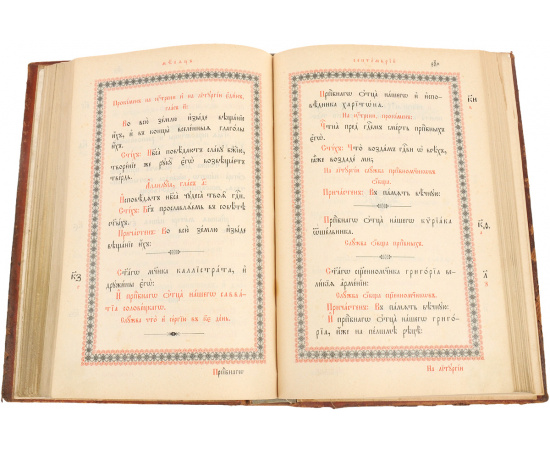 мѣсѧцъ
Прокіменъ на ᲂу҆́трени и҆ на лїтꙋргі́и є҆ди́нъ,
гла́съ и҃:
Во всю̀ зе́млю и҆зы́де вѣща́нїе
и҆́хъ, и҆ въ концы̀ вселе́нныѧ глаго́лы
и҆́хъ.
Сті́хъ: Нб҃са̀ повѣ́дают сла́вꙋ бж҃їю,
творе́нїе же рꙋкꙋ̀ є҆гѡ̀ возвѣща́етъ
тве́рдь.
А҆ллилꙋ́їа, гла́съ а҃:
И҆сповѣ́дѧтъ нб҃са̀ чꙋдеса̀ твоѧ̑ гдⷭ҇и.
Сті́хъ: Бг҃ъ прославлѧ́емь въ совѣ́тѣ
ст҃ы́хъ.
Прича́стенъ: Во всю̀ зе́млю и҆зы́де
вѣща́нїе и҆́хъ:
к҃з
Ст҃а́гѡ мч҃нка каллїстра́та, и҆
дрꙋжи́ны є҆гѡ̀:
И҆ прпⷣбнагѡ ѻ҆тца̀ на́шегѡ савва́тїа
солове́цкагѡ.
Слꙋ́жба что̀
де́нь.
Прпⷣбнагѡ
септе́мврїй
Прпⷣбнагѡ ѻ҆тца̀ на́шегѡ и҆ и҆сповѣ́дника
харїтѡ́на.
к҃и
На ᲂу҆́трени, прокі́менъ:
Честна̀ пред̾ гдⷭ҇емъ сме́рть прпⷣбныхъ
є҆гѡ̀.
Сті́хъ: Что̀ возда́мъ гдⷭ҇ви ѡ҆ всѣ́хъ,
ꙗ҆̀же воздаде́ ми;
На лїтꙋргі́и слꙋ́жба прпⷣбномꙋ́ченикѡмъ
Прича́стенъ: Въ па́мѧть вѣ́чнꙋю:
Прпⷣбнагѡ ѻ҆тца̀ на́шегѡ кѷрїа́ка
ѿше́льника.
к҃ѳ
Слꙋ́жба прпⷣбныхъ.
Ст҃а́гѡ сщ҃енномч҃нка григо́рїа вели́кїѧ
а҆рме́нїи:
л҃
Слꙋ́жба сщ҃енномч҃никѡмъ.
Прича́стенъ: Въ па́мѧть вѣ́чнꙋю:
И҆ прпⷣбнагѡ ѻ҆тца̀ на́шегѡ григо́рїа,
и҆́же на пе́льшмѣ рѣцѣ̀:
На лїтꙋргі́и